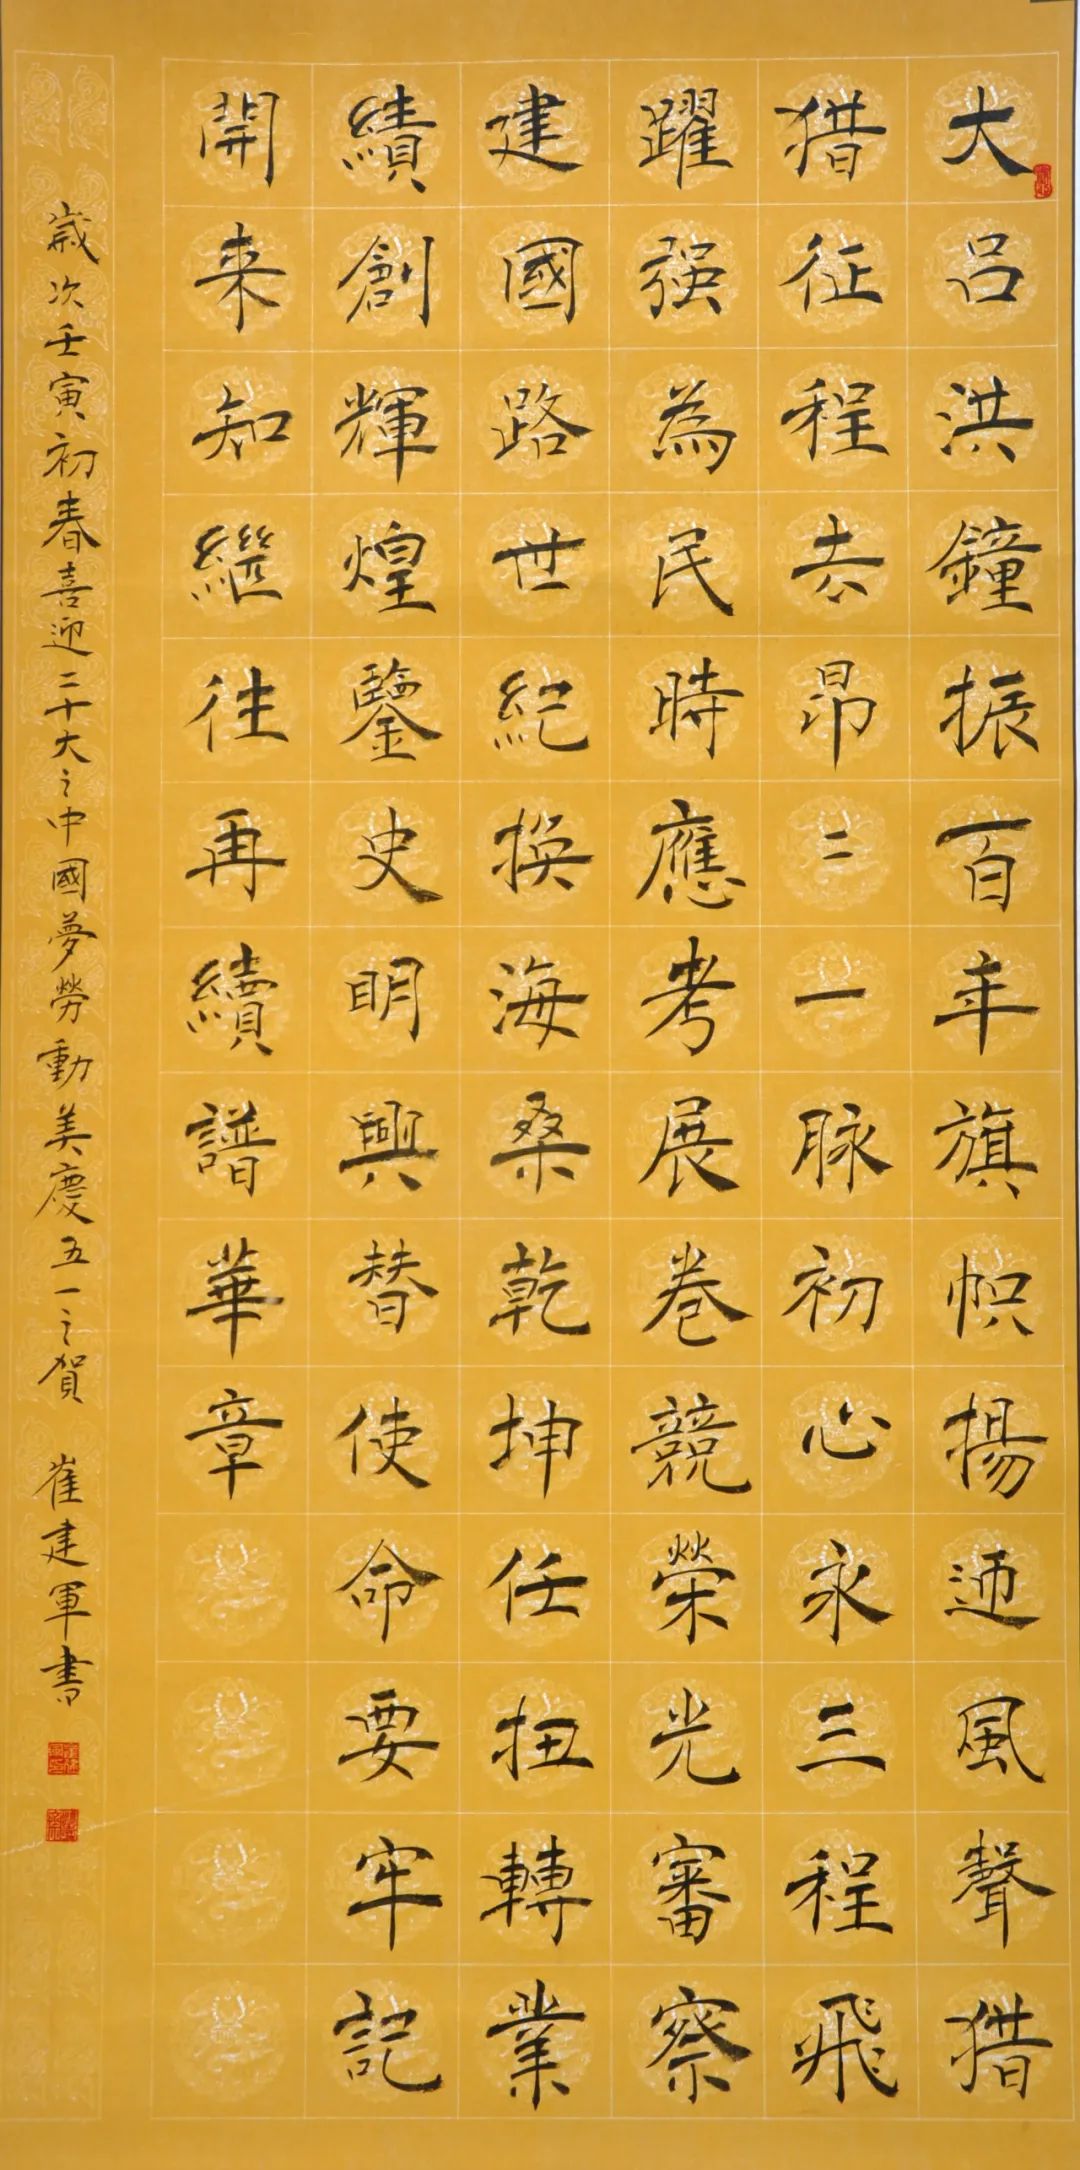 大吕洪鐘振百年旗帜揚迊風聲猎
猎征程去昂二一脉初心永三程飛
躍强為民時應考展卷競榮光審察
建國路世紀换海桑乾坤任扭轉業
績創輝煌鑒史明興替使命要牢記
開来知繼往再續譜華章
歲次壬寅初春喜迎二十大之中國夢勞動美慶五一之賀 崔建軍書